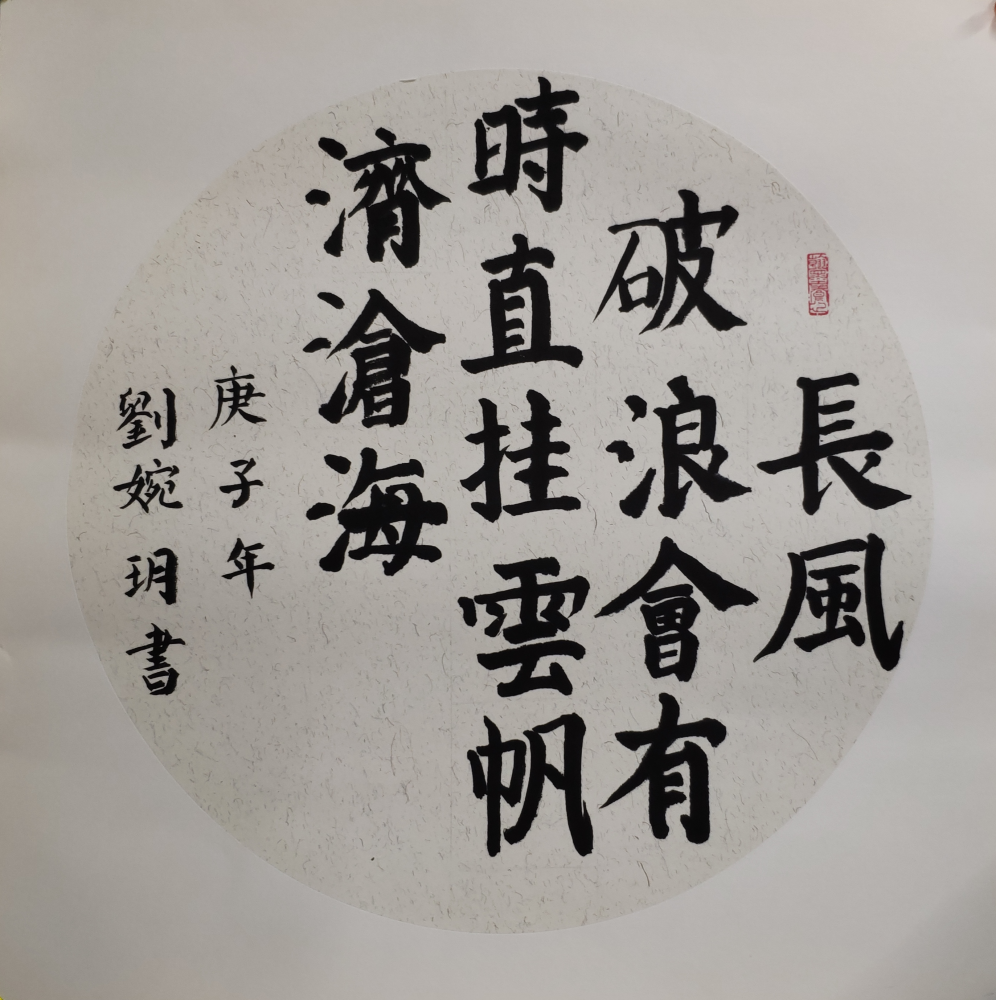 長風
破浪會有
時直挂雲帆
濟滄海
庚子年
劉婉玥書